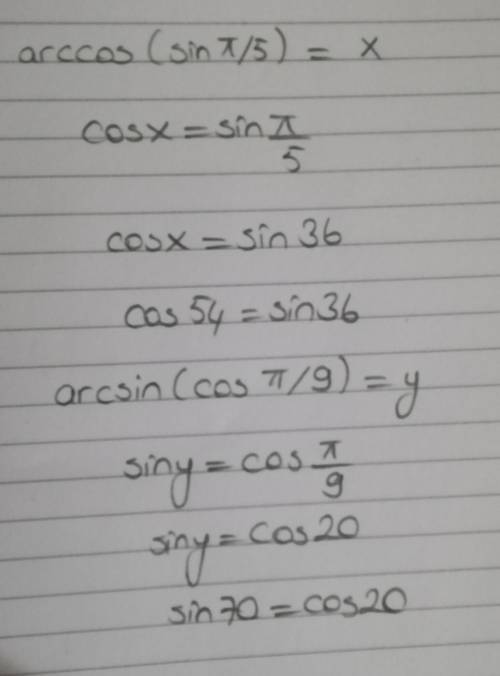 arccos(sin π/5) = x
cosx = sin π/5
cosx = sin 36
cos 54 = sin36
arcsin(cos π/9) = y
siny = cos π/9
siny = cos20
sin70 = cos20